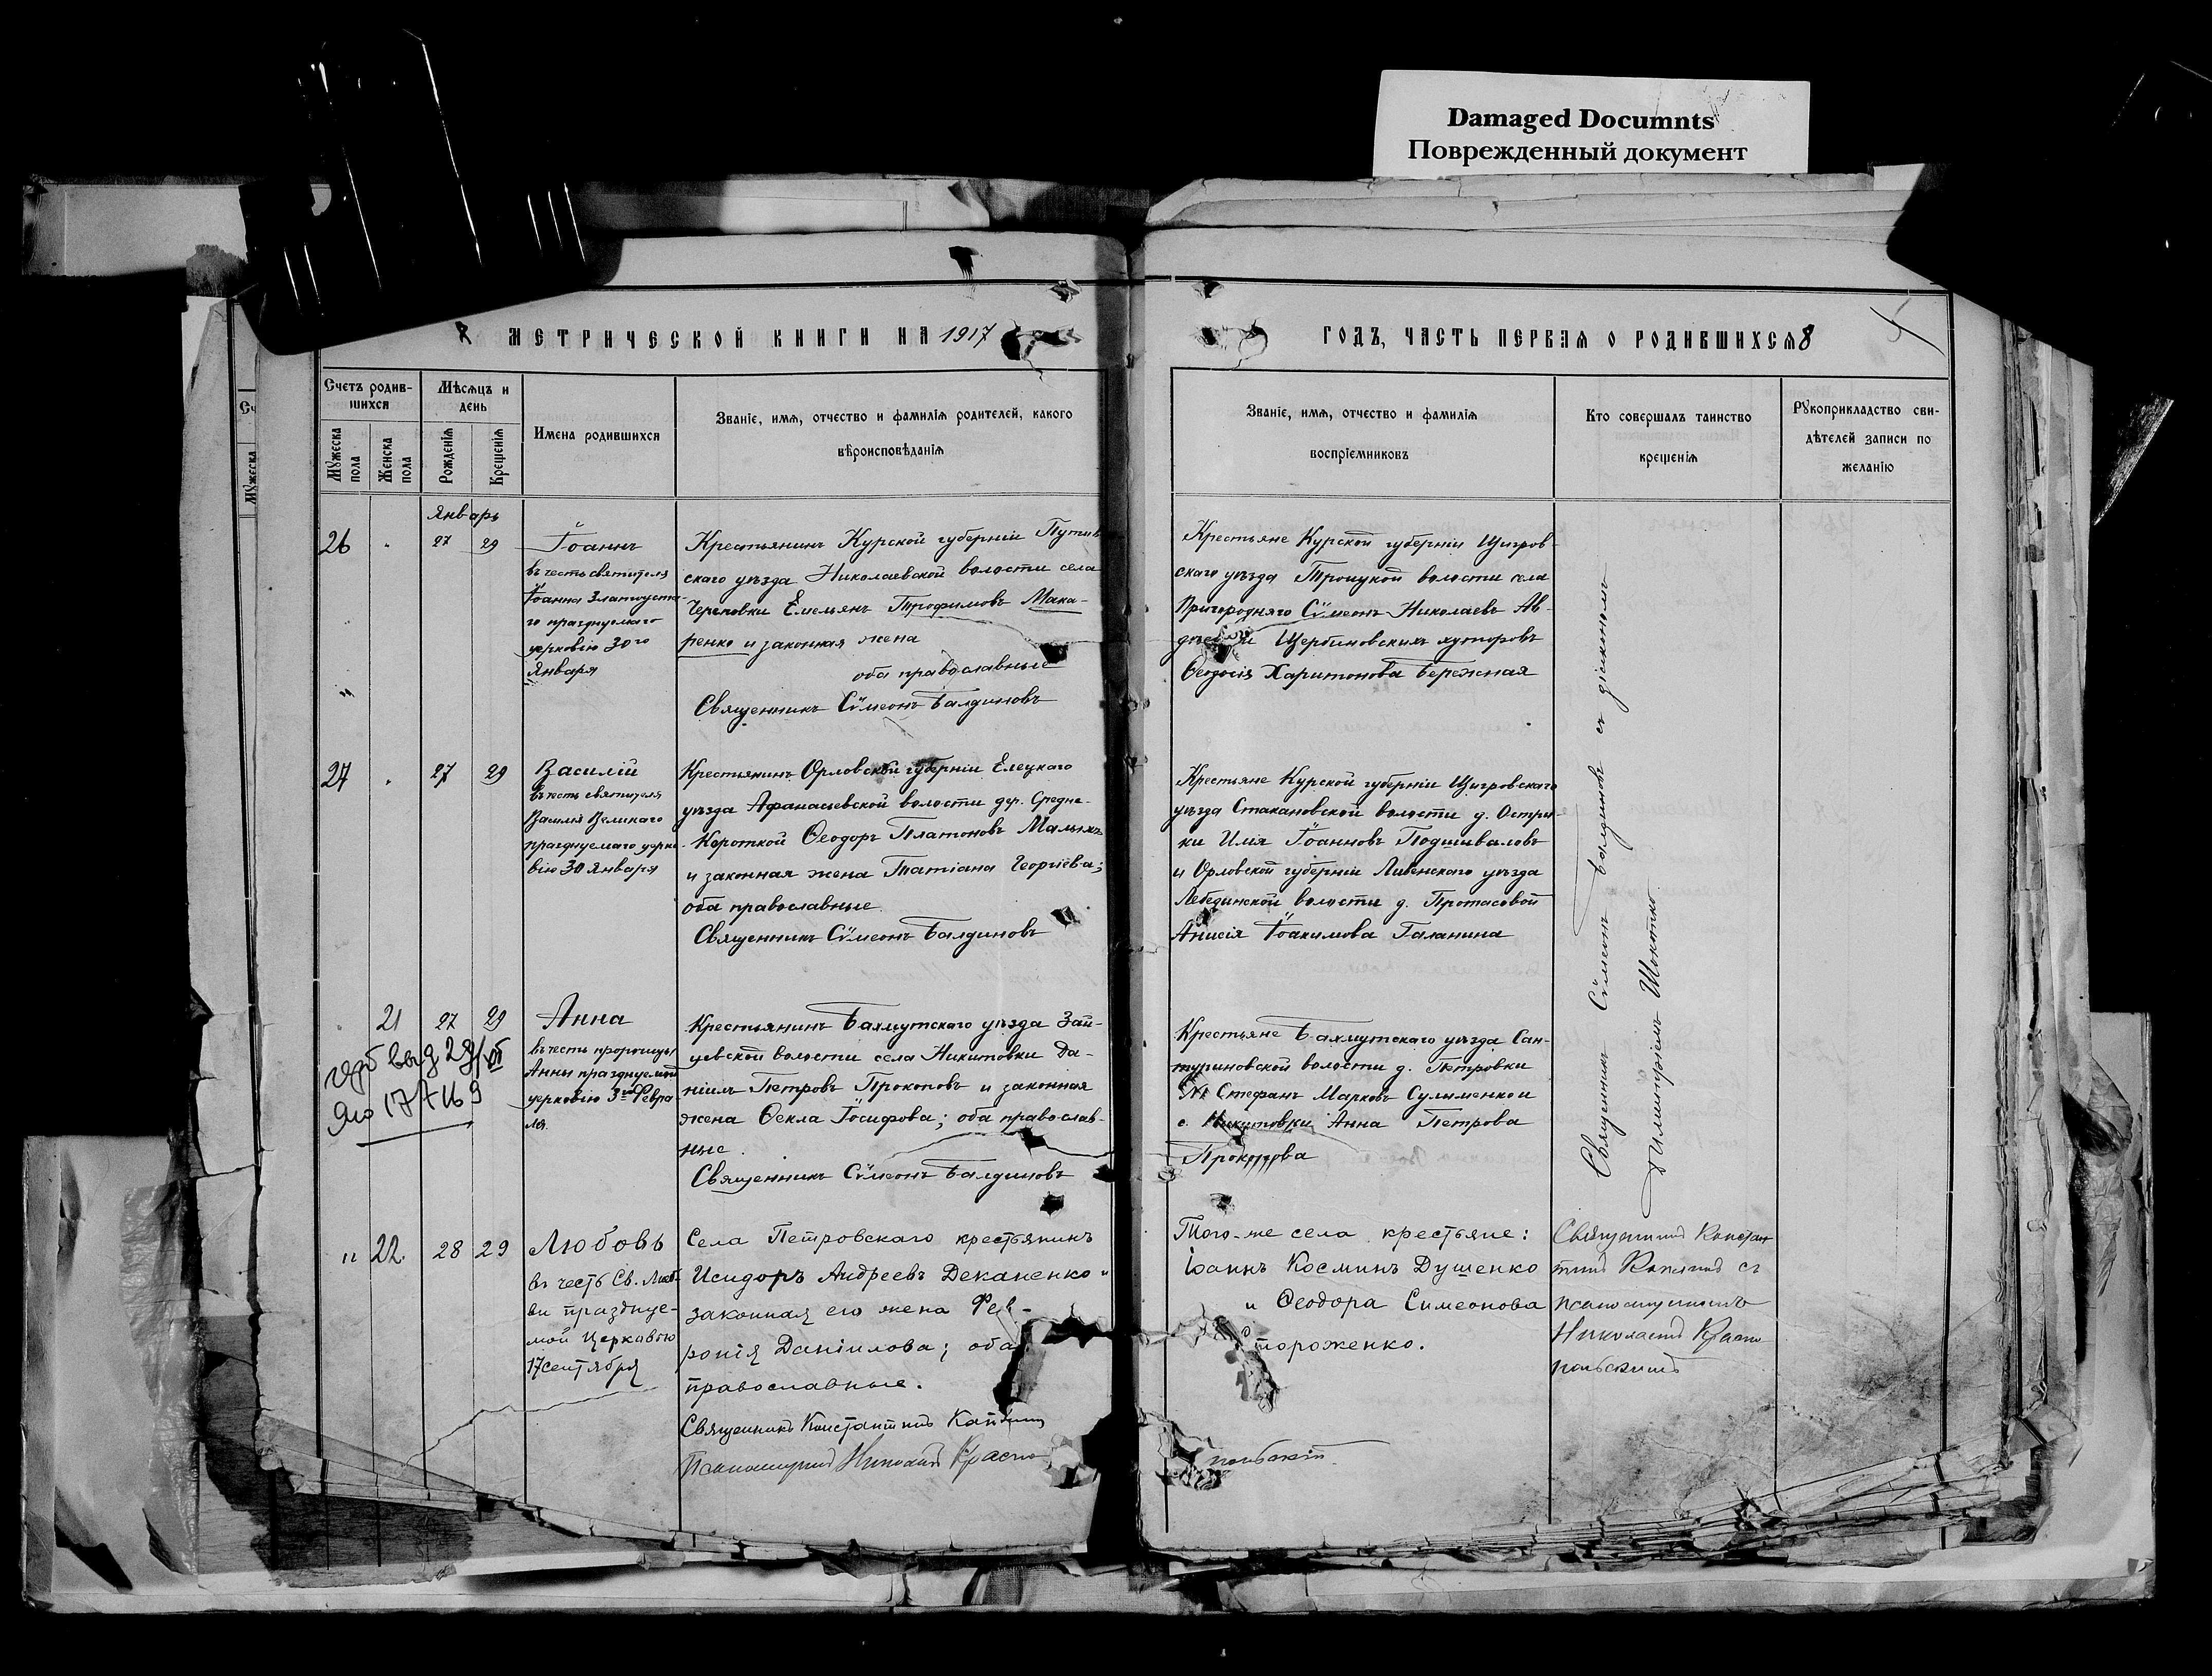 Damaged Documnts
Поврежденный документ
8 МЕТРИЧЕСКОЙ КНИГИ НА 1917
ГОДЪ, ЧАСТЬ ПЕРВАЯ О РОДИВШИХСЯ 8
Счетъ родив-
шихся
Мѣсяцъ и
день
Мужеска
пола
Женска
пола
Рожденія
Крещенія
Имена родившихся
Званіе, имя, отчество и фамилія родителей, какого
вѣроисповѣданія
Званіе, имя, отчество и фамилія
воспріемниковъ
Кто совершалъ таинство
крещенія
Рукоприкладство сви-
дѣтелей записи по
желанію
Январь
26 27 29
Іоаннъ
въ честь святителя
Іоанна Златоуста
го празднуемаго
церковію 30го
Января
Крестьянинъ Курской губерніи Путив
скаго уѣзда Николаевской волости села
Череповки Емельянъ Трофимовъ Мака-
ренко и законная жена
оба православные
Священникъ Сѵмеонъ Балдиновъ
Крестьяне Курской губерніи Щигров-
скаго уѣзда Троицкой волости села
Пригородняго Сѵмеонъ Николаевъ Ав-
и Щербиновскихъ хуторовъ
Ѳеодосія Харитонова Бережная
27 27 29
Василій
въ честь святителя
Василія Великаго
празднуемаго церко-
вію 30 Января
Крестьянинъ Орловской губерніи Елецкаго
уѣзда Афанасьевской волости дер. Средне-
Короткой Ѳеодоръ Платоновъ Малыхъ
и законная жена Татіана Георгіева;
оба православные
Священникъ Сѵмеонъ Балдиновъ
Крестьяне Курской губерніи Щигровскаго
уѣзда Стакановской волости д. Остри
ки Илія Іоанновъ Подшиваловъ
и Орловской губерніи Ливенскаго уѣзда
Лебединской волости д. Протасовой
Анисія Іоакимова Галанина
21 27 29
Анна
въ честь пророчицы
Анны празднуемой
церковію 3го Февра-
ля.
Крестьянинъ Бахмутскаго уѣзда Зай-
цевской волости села Никитовки Да-
ніилъ Петровъ Прокоповъ и законная
жена Ѳекла Іосифова; оба православ-
ные.
Священникъ Сѵмеонъ Балдиновъ
Крестьяне Бахмутскаго уѣзда Сан-
туриновской волости д. Петровки
Стефанъ Марковъ Сулименко и
с. Никитовки Анна Петрова
Прокопова
Священникъ Сѵмеонъ Балдиновъ съ діакономъ
Димитріемъ
22. 28 29
Любовь
въ честь Св. Люб-
ви празднуе-
мой Церковью
17 сентября
Села Петровскаго крестьянинъ
Исидоръ Андреевъ Деканенко и
законная его жена Фев-
ронія Даніилова; оба
православные.
Священникъ Константинъ
Псаломщикъ Николай Красно
польскій
Того-же села крестьяне:
Іоаннъ Косминъ Душенко
и Ѳеодора Симеонова
Стороженко.
Священникъ Констан
тинъ съ
псаломщикомъ
Николаемъ Красно
польскимъ